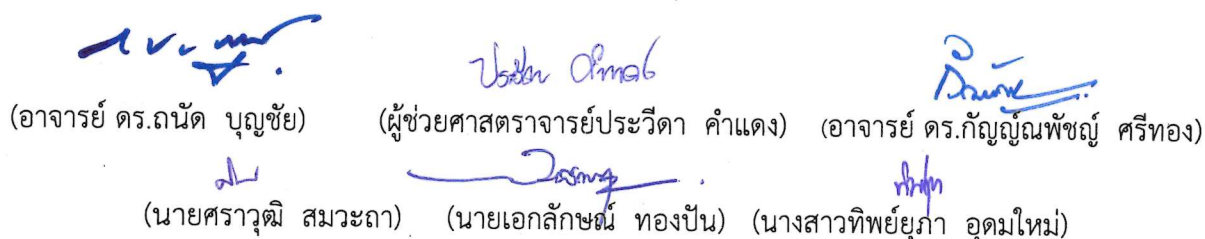 (อาจารย์ ดร.ถนัด บุญชัย) (ผู้ช่วยศาสตราจารย์ประวีดา คำแดง) (อาจารย์ ดร.กัญญ์ณพัชญ์ ศรีทอง)
(นายศราวุฒิ สมวะถา) (นายเอกลักษณ์ ทองปัน) (นางสาวทิพย์ยุภา อุดมใหม่)